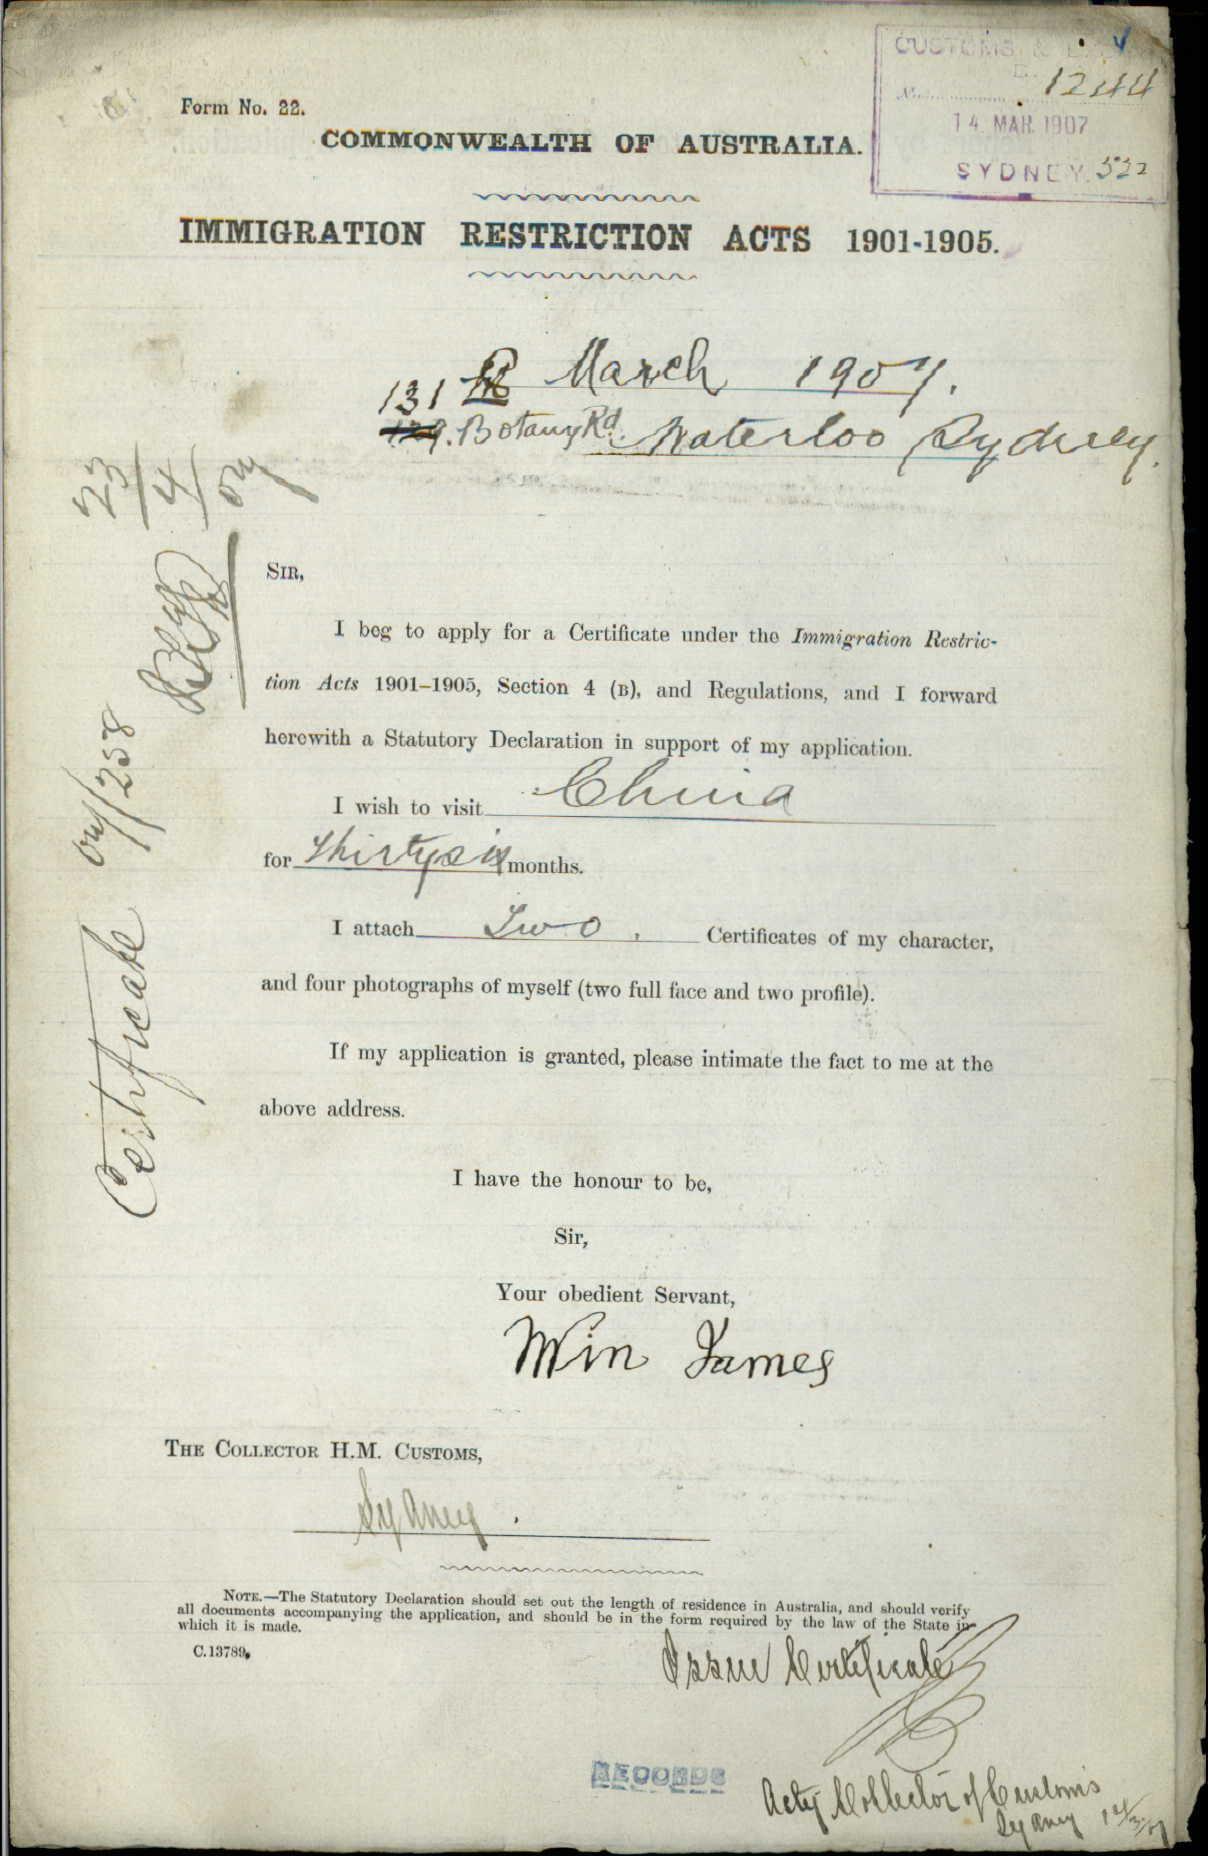 Form No. 22.
CUSTOMS &
No. 1244
14 MAR. 1907
SYDNEY. 522
COMMONWEALTH OF AUSTRALIA.
IMMIGRATION RESTRICTION ACTS 1901-1905.
March 1907.
131
129. Botany Rd. Waterloo Sydney.
SIR,
I beg to apply for a Certificate under the Immigration Restric-
tion Acts 1901–1905, Section 4 (B), and Regulations, and I forward
herewith a Statutory Declaration in support of my application.
I wish to visit China
for Thirtysix months.
I attach Two. Certificates of my character,
and four photographs of myself (two full face and two profile).
If my application is granted, please intimate the fact to me at the
above address.
I have the honour to be,
Sir,
Your obedient Servant,
Win James
THE COLLECTOR H.M. CUSTOMS,
Sydney.
NOTE.—The Statutory Declaration should set out the length of residence in Australia, and should verify
all documents accompanying the application, and should be in the form required by the law of the State in
which it is made.
C.13789.
Issue Certificate
RECORDS
Actg Collector of Customs
Sydney 14/3/07
Certificate 07/258
23/4/07